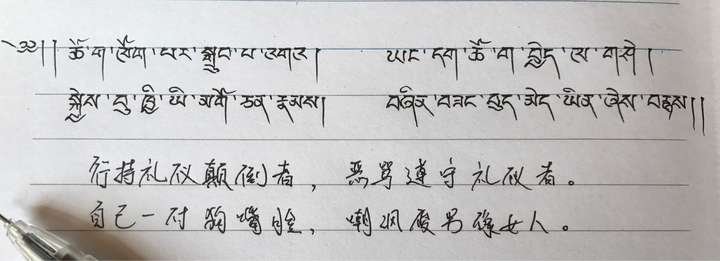 ༄༅།། ཆོ་ག་ལོག་པར་སྒྲུབ་པ་འགའ། ཡང་དག་ཆོ་ག་བྱེད་ལ་གཤེ །
སྐྱེས་བུ་ཁྱི་ཡི་མགོ་ཅན་རྣམས། བཞིན་བཟང་བུད་མེད་ཡིན་ཞེས་བརྙས།།
行持礼仪颠倒者，恶骂遵守礼仪者。
自己一对狗嘴脸，嘲讽男像女人。